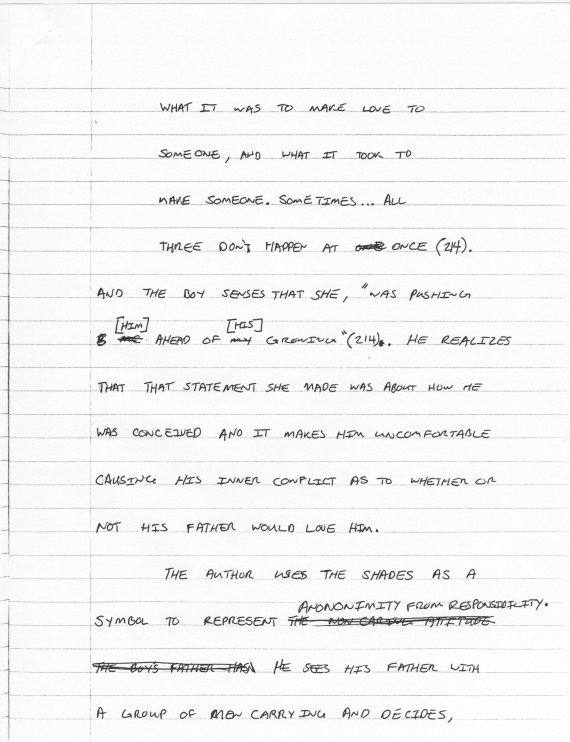 WHAT IT WAS TO MAKE LOVE TO
SOMEONE, AND WHAT IT TOOK TO
MAKE SOMEONE. SOMETIMES... ALL
THREE DON'T HAPPEN AT ONCE (214).
AND THE BOY SENSES THAT SHE, "WAS PUSHING
[HIM] AHEAD OF [HIS] GROWING" (214). HE REALIZES
THAT THAT STATEMENT SHE MADE WAS ABOUT HOW HE
WAS CONCEIVED AND IT MAKES HIM UNCOMFORTABLE
CAUSING HIS INNER CONFLICT AS TO WHETHER OR
NOT HIS FATHER WOULD LOVE HIM.
THE AUTHOR USES THE SHADES AS A
ANONONIMITY FROM RESPONSIBILITY.
SYMBOL TO REPRESENT THE NON CARING ATTITUDE
THE BOY'S FATHER HAS HE SEES HIS FATHER WITH
A GROUP OF MEN CARRYING AND DECIDES,